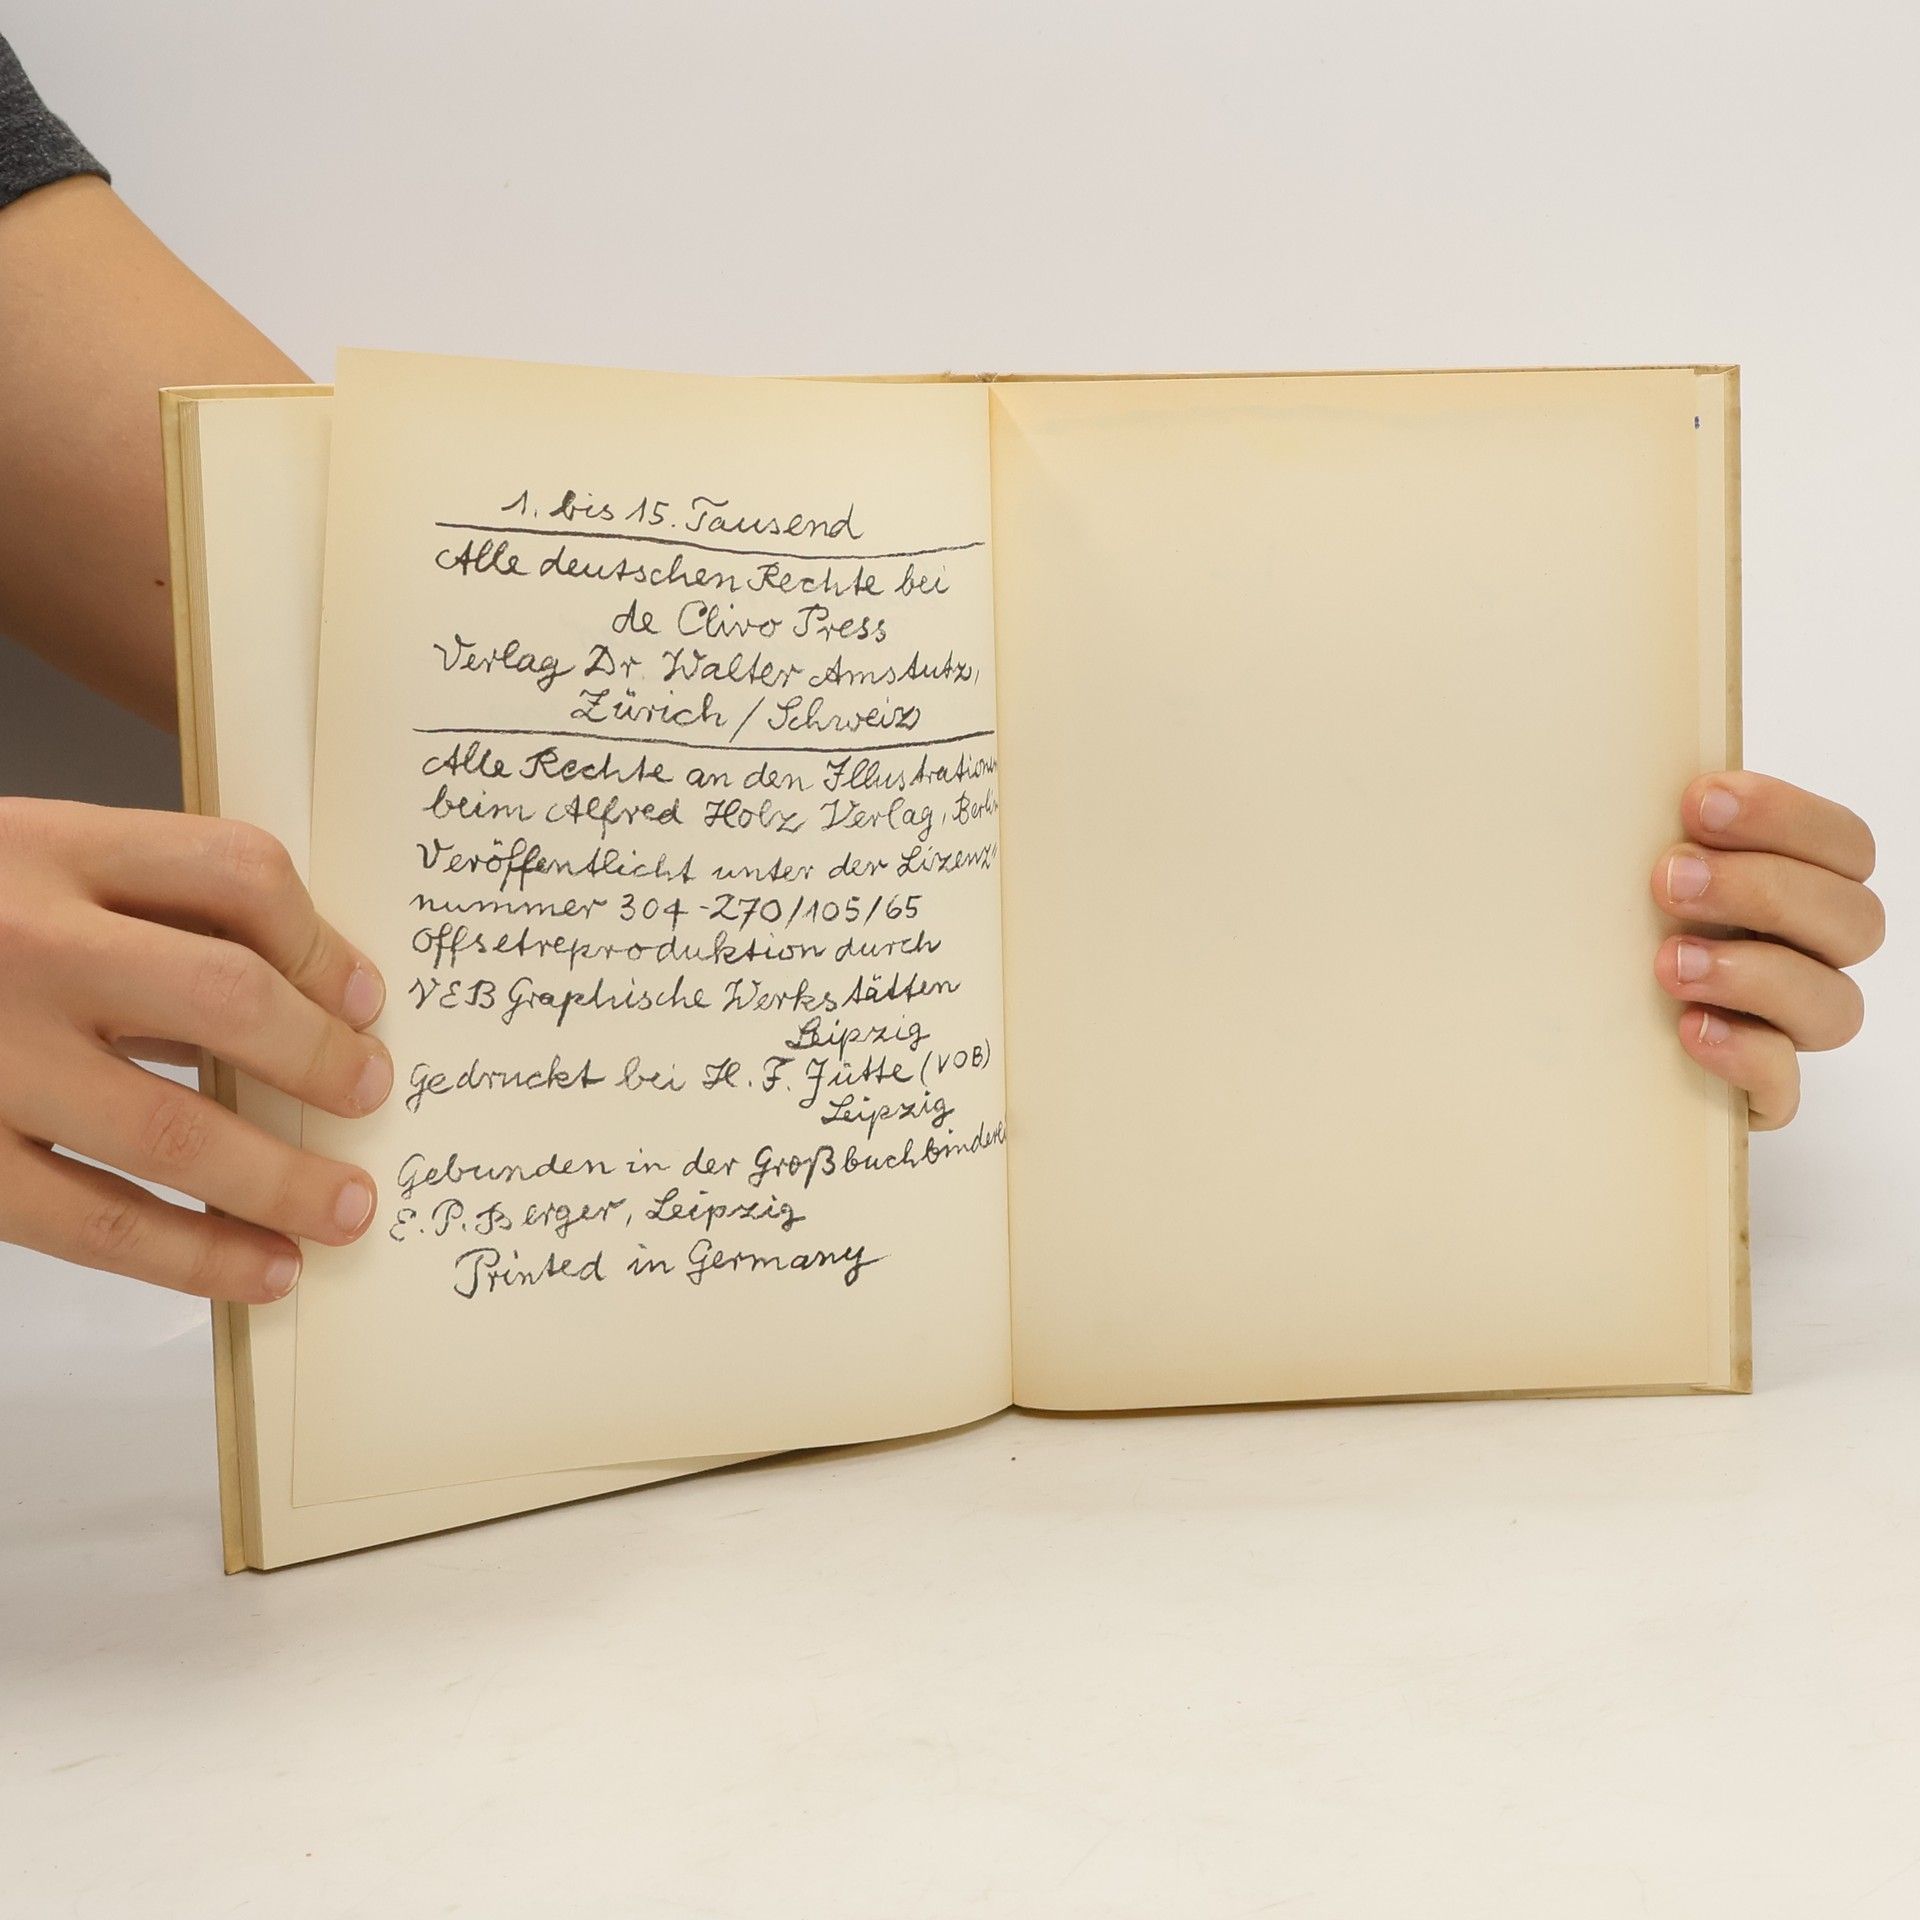 1. bis 15. Tausend
Alle deutschen Rechte bei
de Clivo Press
Verlag Dr. Walter Amstutz,
Zürich / Schweiz
Alle Rechte an den Illustrationen
beim Alfred Holz Verlag, Berlin
Veröffentlicht unter der Lizenz"
nummer 304-270/105/65
Offsetreproduktion durch
VEB Graphische Werkstätten
Leipzig
Gedruckt bei H. F. Jütte (VOB)
Leipzig
Gebunden in der Großbuchbinderei
E. P. Berger, Leipzig
Printed in Germany